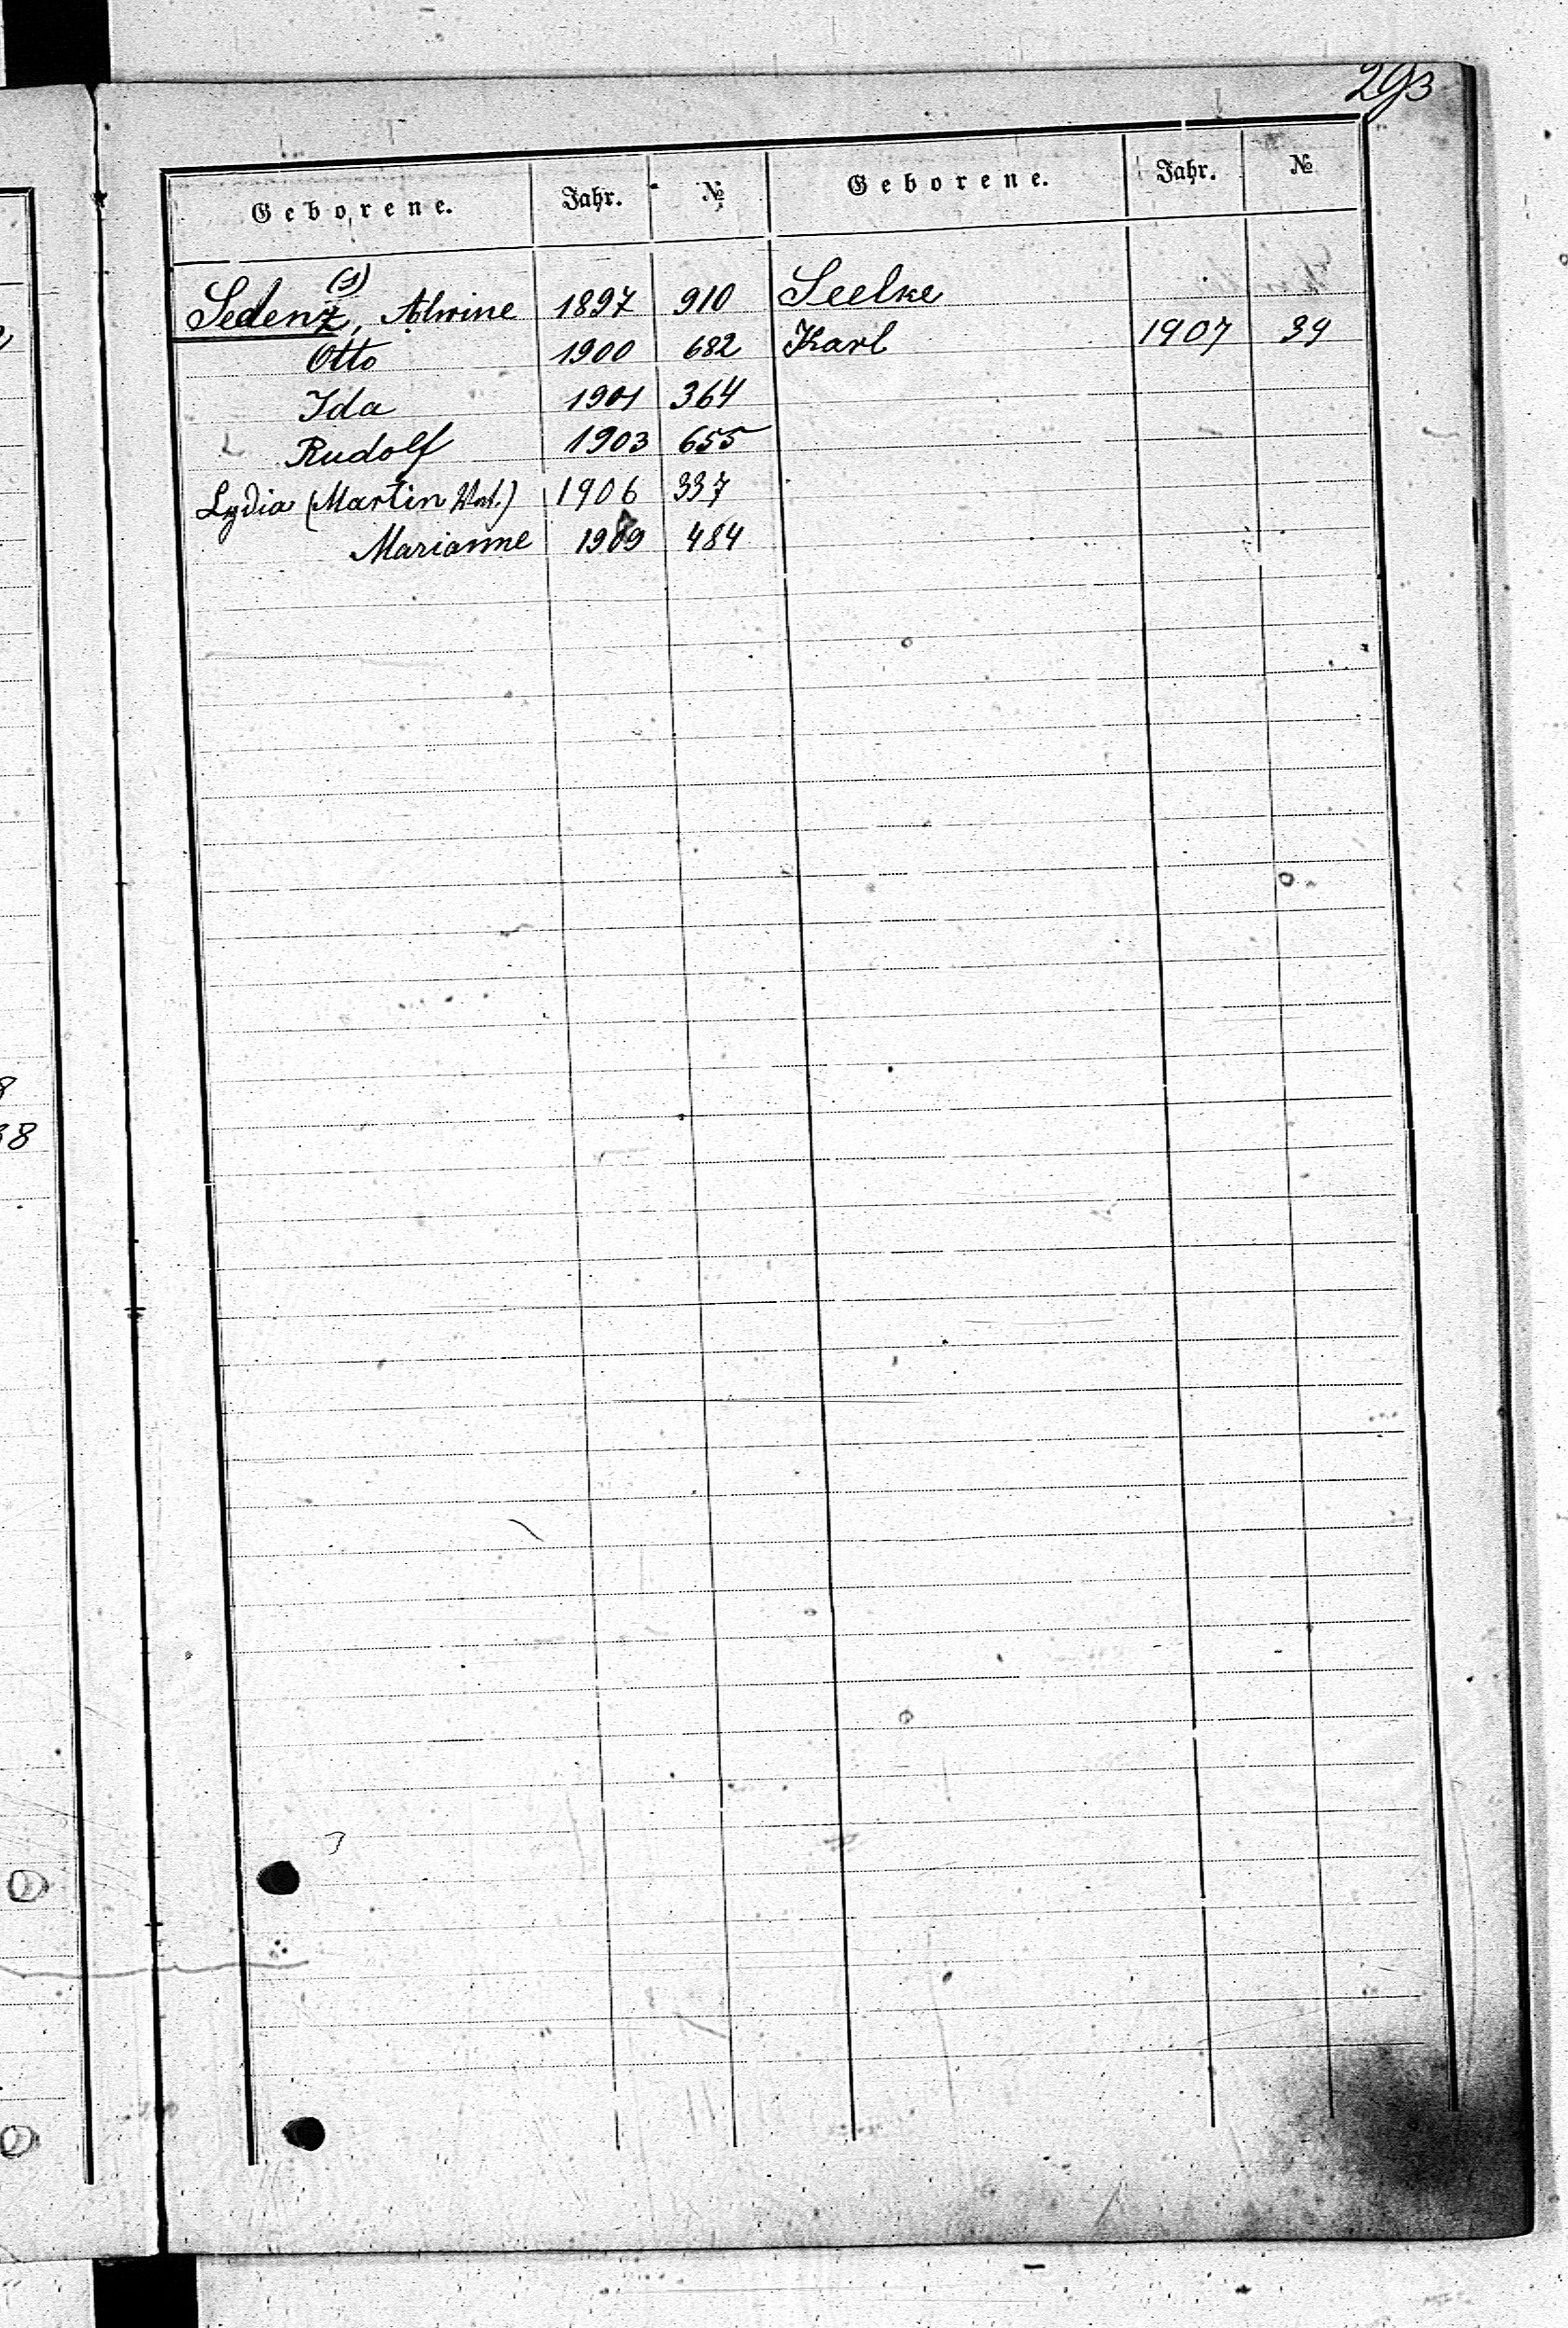 293
Geborene. Jahr. № Geborene. Jahr. №
(s)
Sedenz, Alwine 1897 910 Seelke
Otto 1900 682 Karl 1907 39
Ida 1901 364
Rudolf 1903 655
Lydia (Martin 1906 337
Marianne 1909 484
8
38